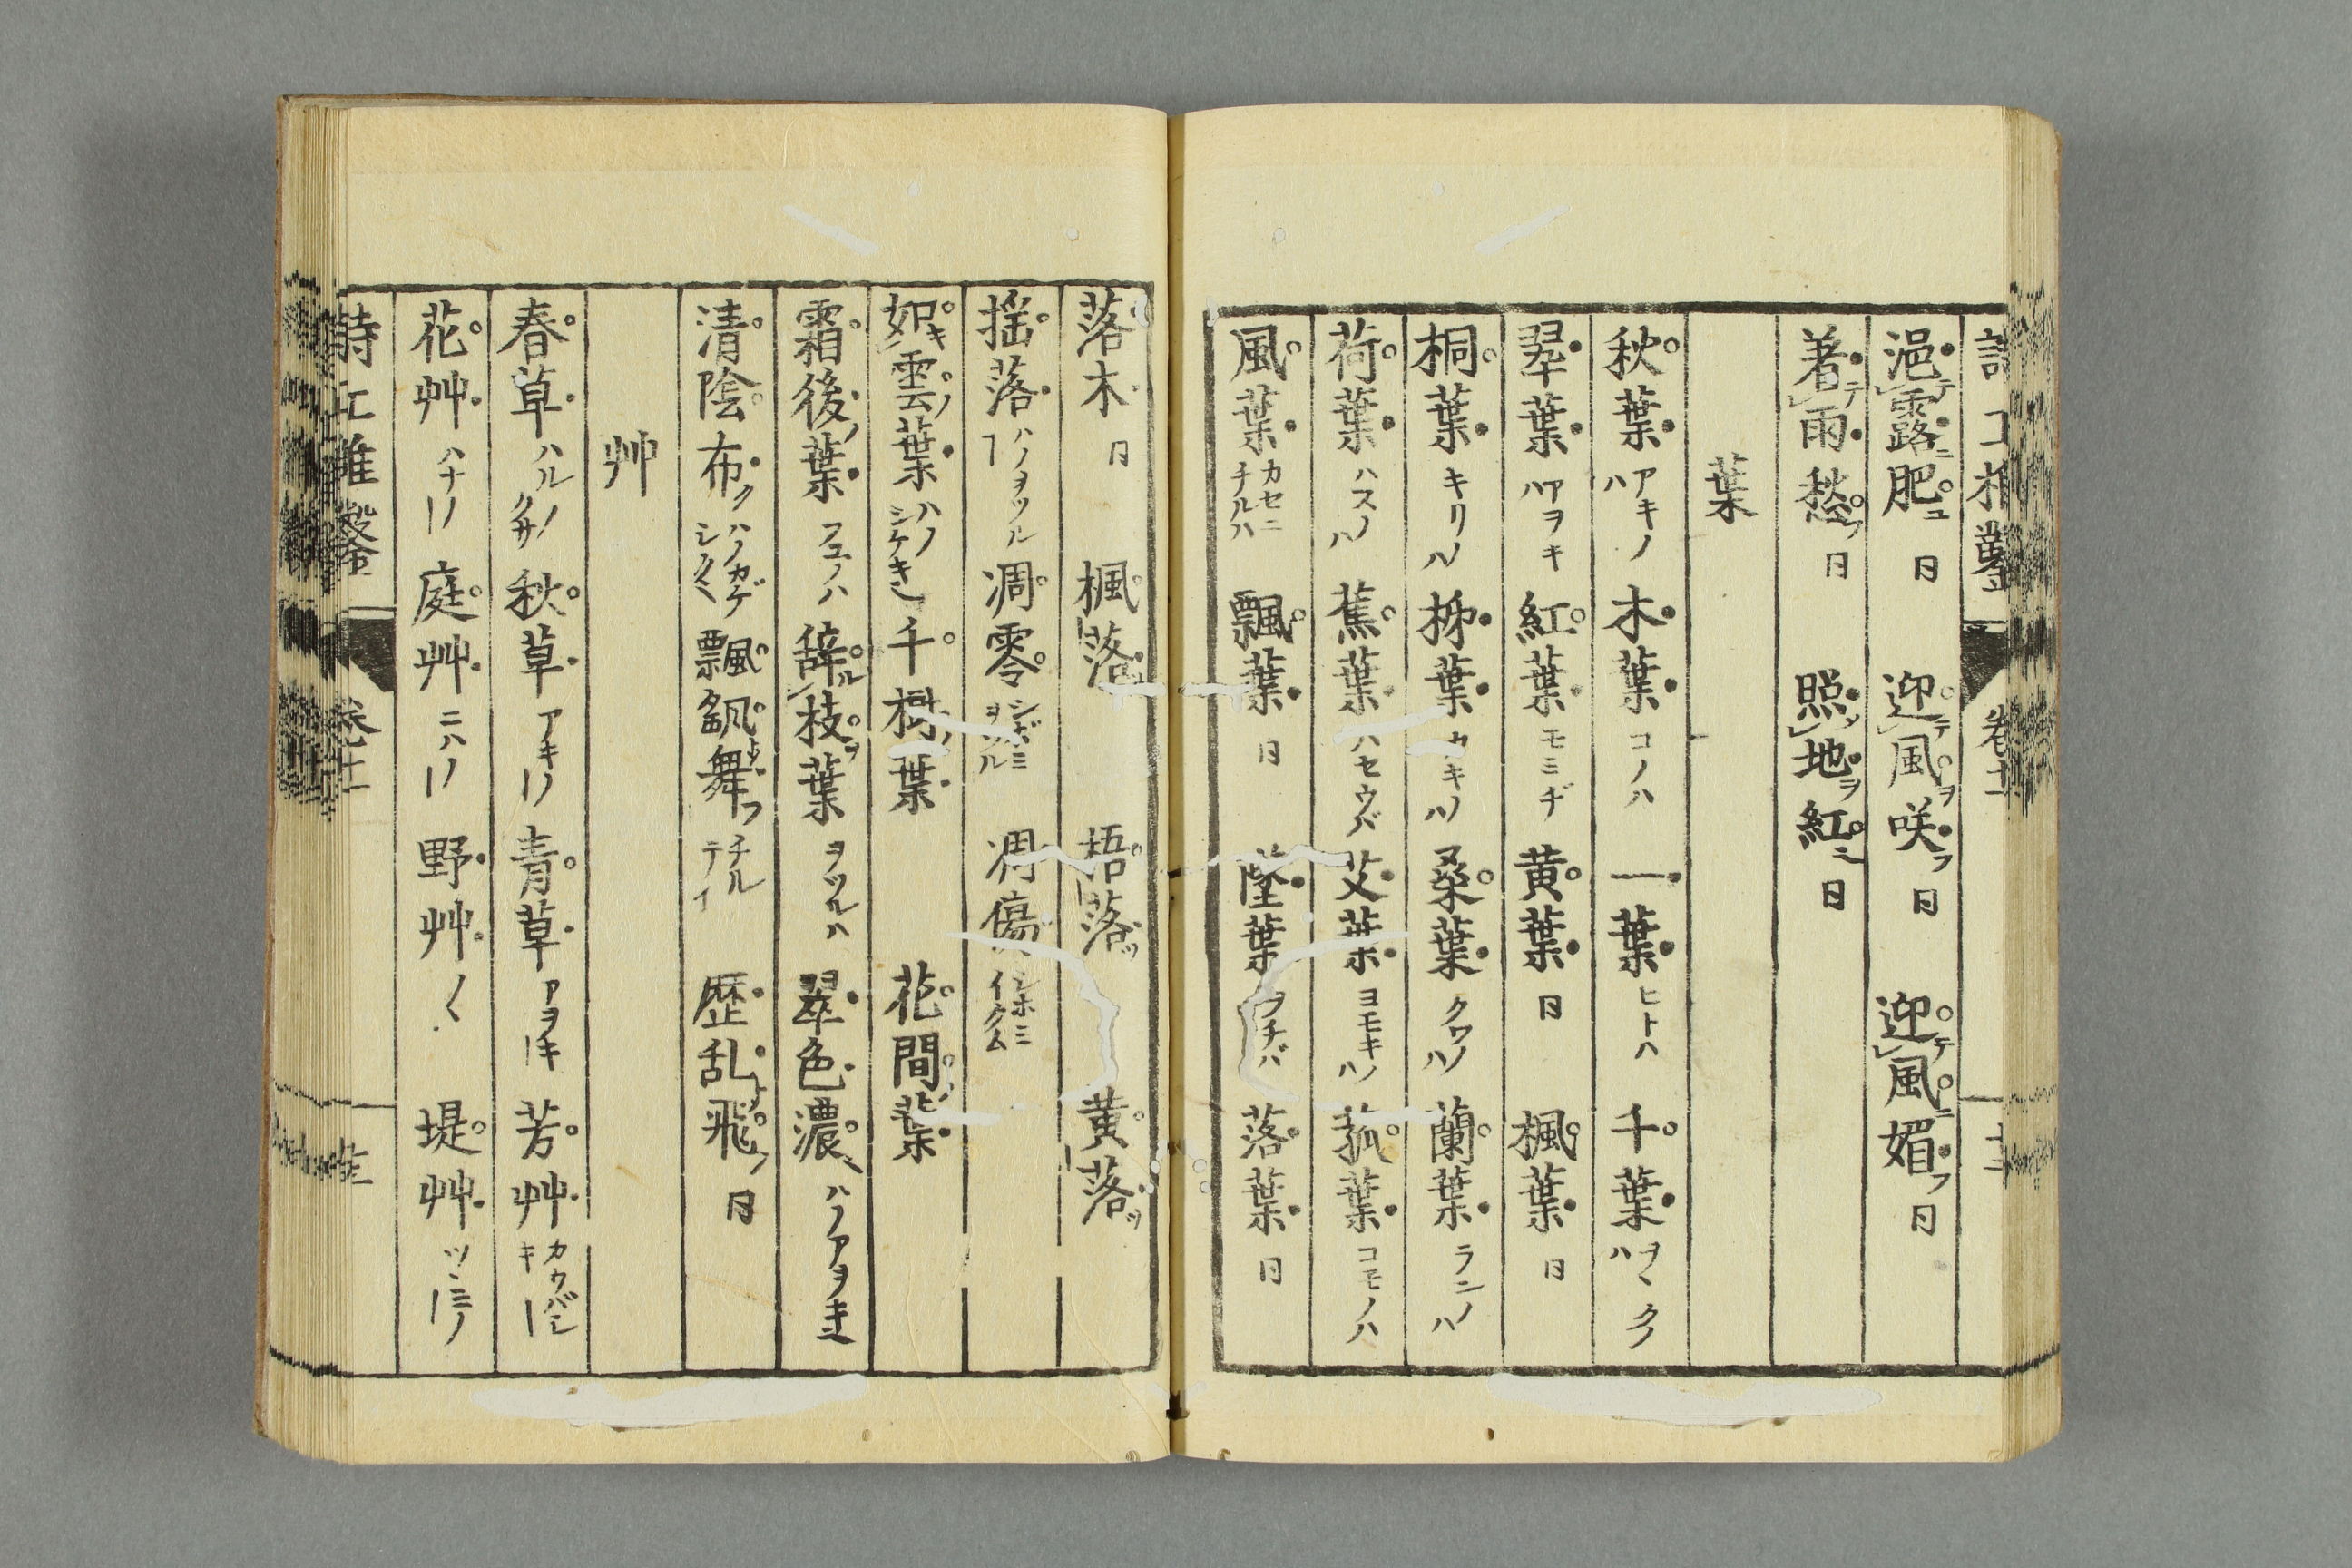 浥テ露ニ肥ユ 日 迎テ風ヲ咲フ 日 迎テ風ニ媚フ 日
着テ雨愁フ 日 照メ地ヲ紅ニ 日
葉
秋葉 アキノハ 木葉 コノハ 一葉 ヒトハ 千葉 ヲヽクノハ
翠葉 アヲキハ 紅葉 モミヂ 黄葉 日 楓葉 日
桐葉 キリノハ 柹葉 カキノハ 桑葉 クワノハ 蘭葉 ランノハ
荷葉 ハスノハ 蕉葉 バセウバ 艾葉 ヨモキノハ 菰葉 コモノハ
風葉 カセニチルハ 飄葉 日 墜葉 ヲチバ 落葉 日
落木 日 楓落 梧落ツ 黄落ツ
揺落 ハノヲツル 凋零 シボミヲツル 凋傷 シホミイタム
如キ雲ノ葉 ハノシケキ 千樹ノ葉 花間ノ葉
霜後ノ葉 フユノハ 辞ル枝ヲ葉 ヲツルハ 翠色濃 ハノアヲキ
清陰布ク ハノカゲシク 飄颻ト舞フ チルテイ 歴乱ト飛フ 日
艸
春草 ハルノクサ 秋草 アキノ 青草 アヲキ 芳艸 カウバシキ
花艸 ハナノ 庭艸 ニハノ 野艸 ノヽ 堤艸 ツヽミノ
詩工推鑿 巻十一